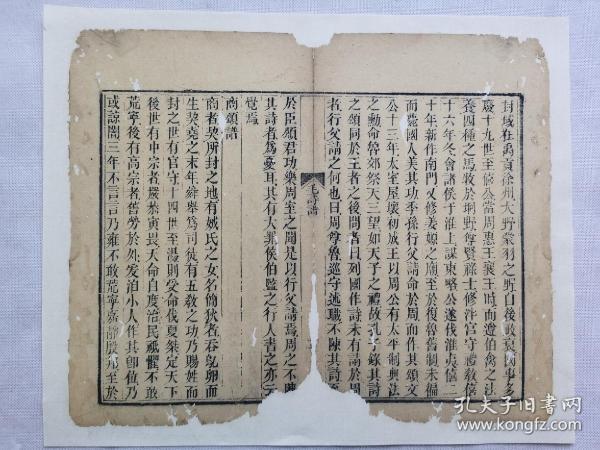 封域在禹貢徐州大野蒙羽之野自後政衰國事多
廢十九世至僖公當周惠王襄王時而遵伯禽之法
養四種之馬牧於坰野尊賢祿士修泮宮守禮教僖
十六年冬會諸侯于淮上謀東略公遂伐淮夷僖二
十年新作南門又修姜嫄之廟至於復魯舊制未徧
而薨國人美其功季孫行父請命於周而作其頌文
公十三年太室屋壞初成王以周公有太平制典法
之勳命魯郊祭天三望如天子之禮故孔子錄其詩
之頌同於王者之後問者曰列國作詩未有請於周
者行父請之何也曰周尊魯巡守述職不陳其詩
毛詩譜
於臣頌君功樂周室之聞是以行父請焉周之不陳
其詩者為憂耳其有大罪侯伯監之行人書之亦
覺焉
商頌譜
商者契所封之地有娀氏之女名簡狄者吞鳦卵而
生契堯之末年舜舉為司徒有五教之功乃賜姓而
封之世有官守十四世至湯則受命伐夏桀定天下
後世有中宗者嚴恭寅畏天命自度治民祗懼不敢
荒寧後有高宗者舊勞於外爰洎小人作其卽位乃
或諒闇三年不言言乃雍不敢荒寧嘉靜殷邦至於
孔夫子旧书网
www.kongfz.com